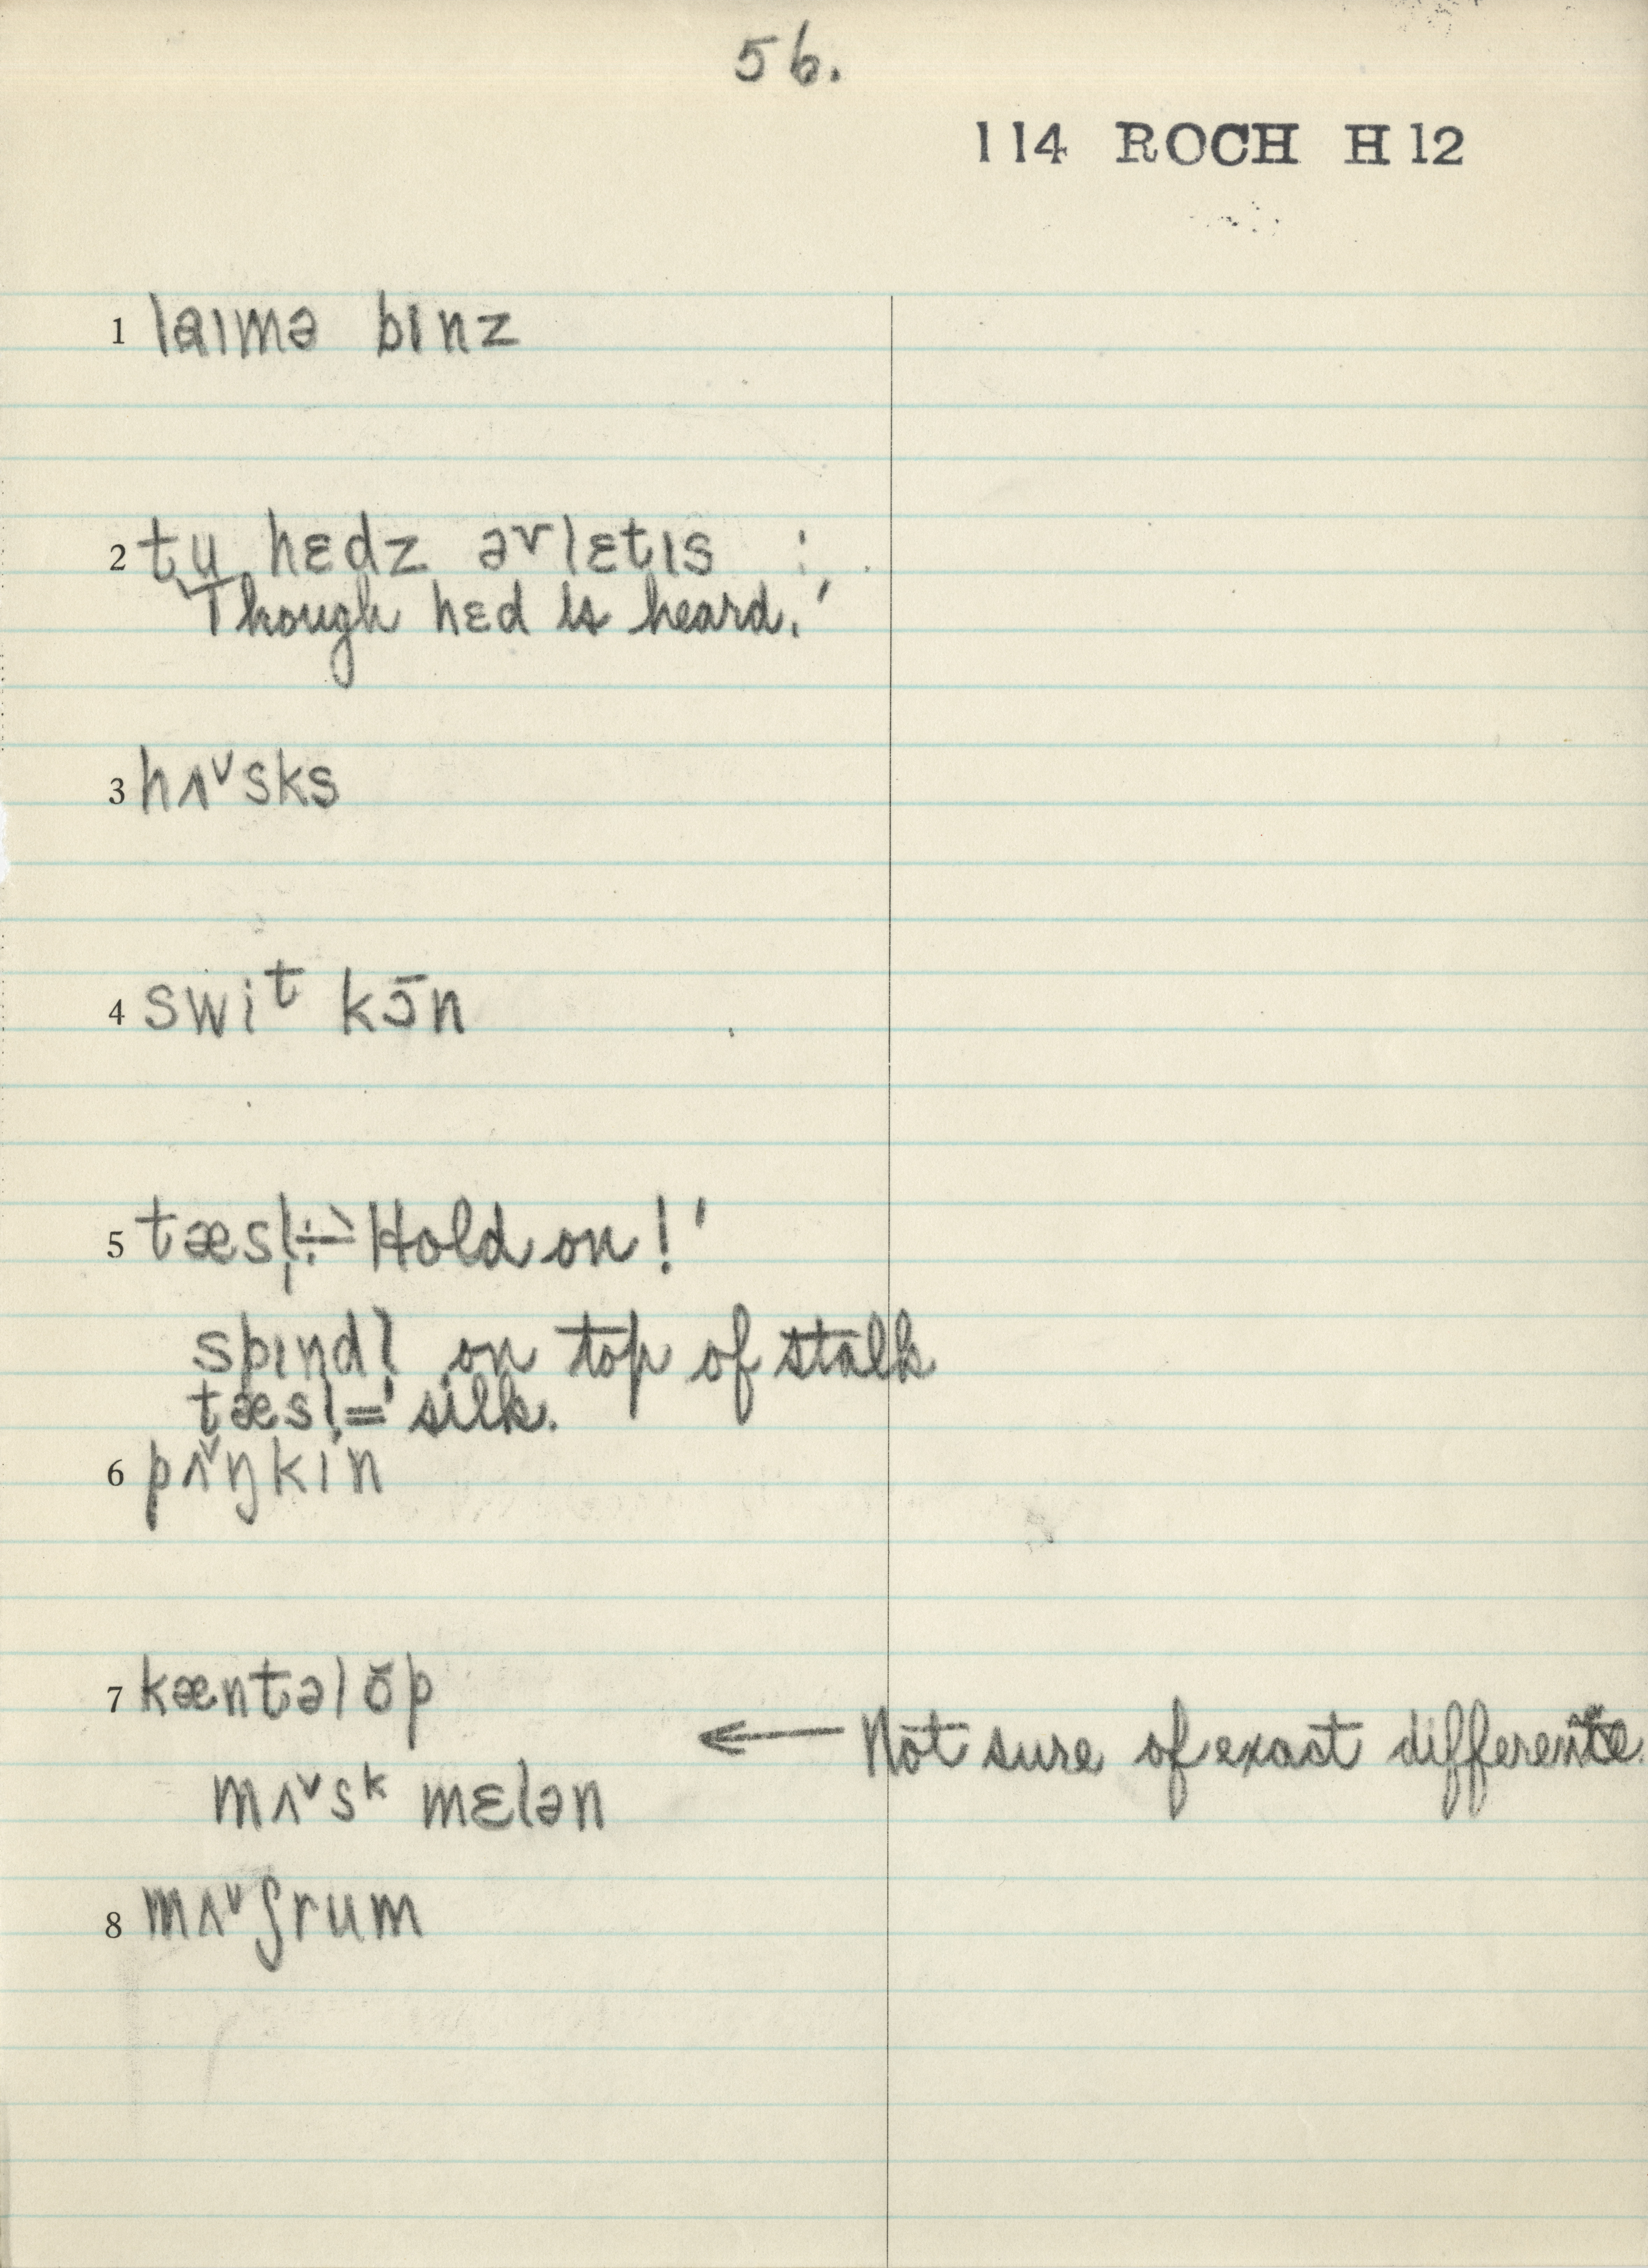 56.
114 ROCH H12
1 laɪmə bɪnz
2 tu hɛdz əvlɛtɪs :
'Though hɛd is heard.'
3 hʌ˅sks
4 swiᵗ kɔ̄n
5 tæsl̩ ÷ 'Hold on!'
spɪndl̩ on top of stalk
tæsl̩ = silk.
6 pʌ˅ŋkin
7 kæntəlŏp
← Not sure of exact difference.
mʌ˅sᵏ mɛlən
8 mʌ˅ʃrum